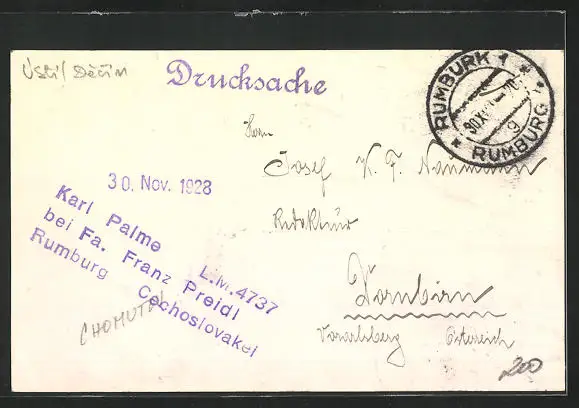 Ústí/Děčín
Drucksache
RUMBURK 1
30.XI.
RUMBURG
Herrn
30. Nov. 1928
Josef K. F. Naumann
Karl Palme L.M.4737
bei Fa. Franz Preidl
Rumburg Čechoslovakei
Redakteur
Dornbirn
CHOMUTOV
Vorarlsberg Österreich
200